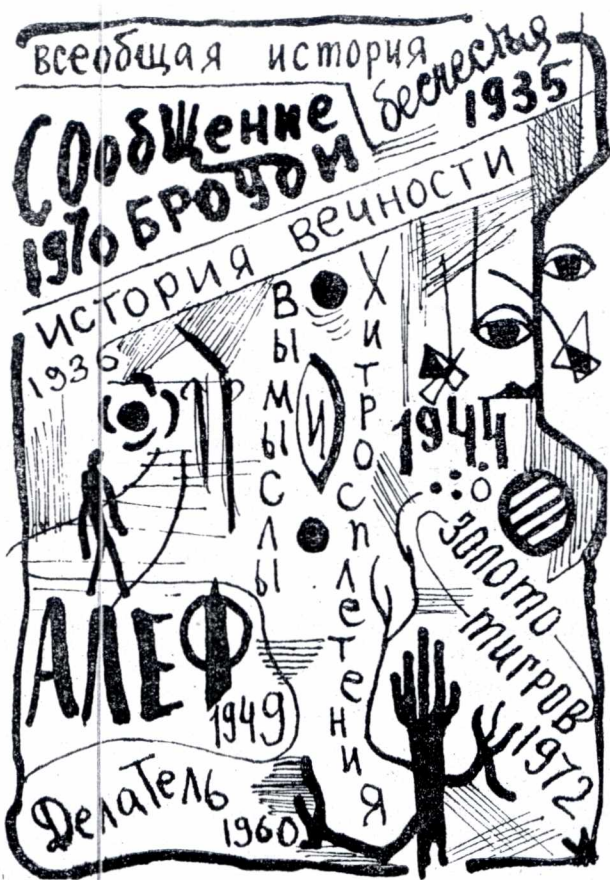 всеобщая история
бесчестья
1935
Сообщение
1970 БРОУДИ
история вечности
1936
Вымыслы
И
Хитросплетения
1944
АЛЕФ
1949
золото
тигров
1972
Делатель
1960